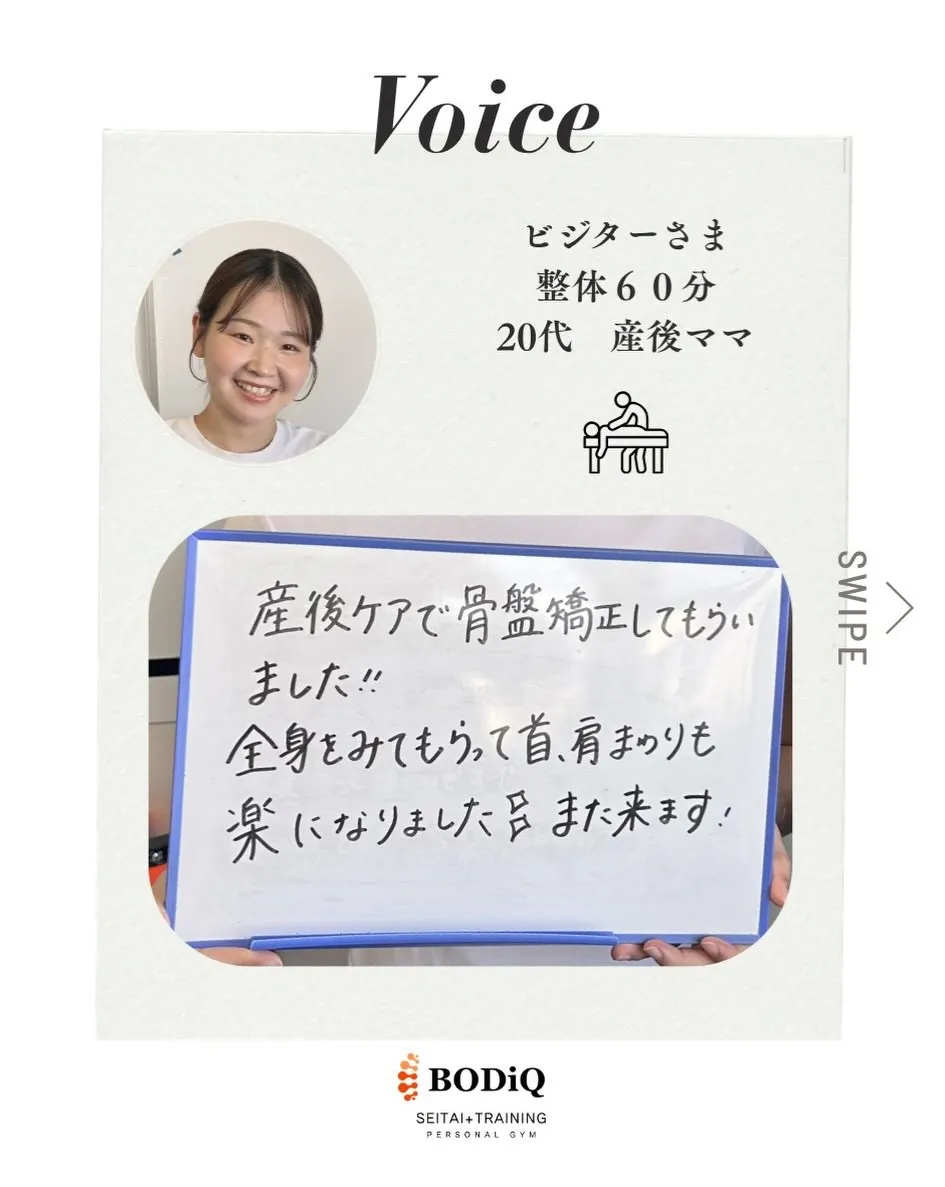 Voice
ビジターさま
整体６０分
20代　産後ママ
産後ケアで骨盤矯正してもらい
ました!!
全身をみてもらって首、肩まわりも
楽になりました!! また来ます!
SWIPE
BODiQ
SEITAI+TRAINING
PERSONAL GYM